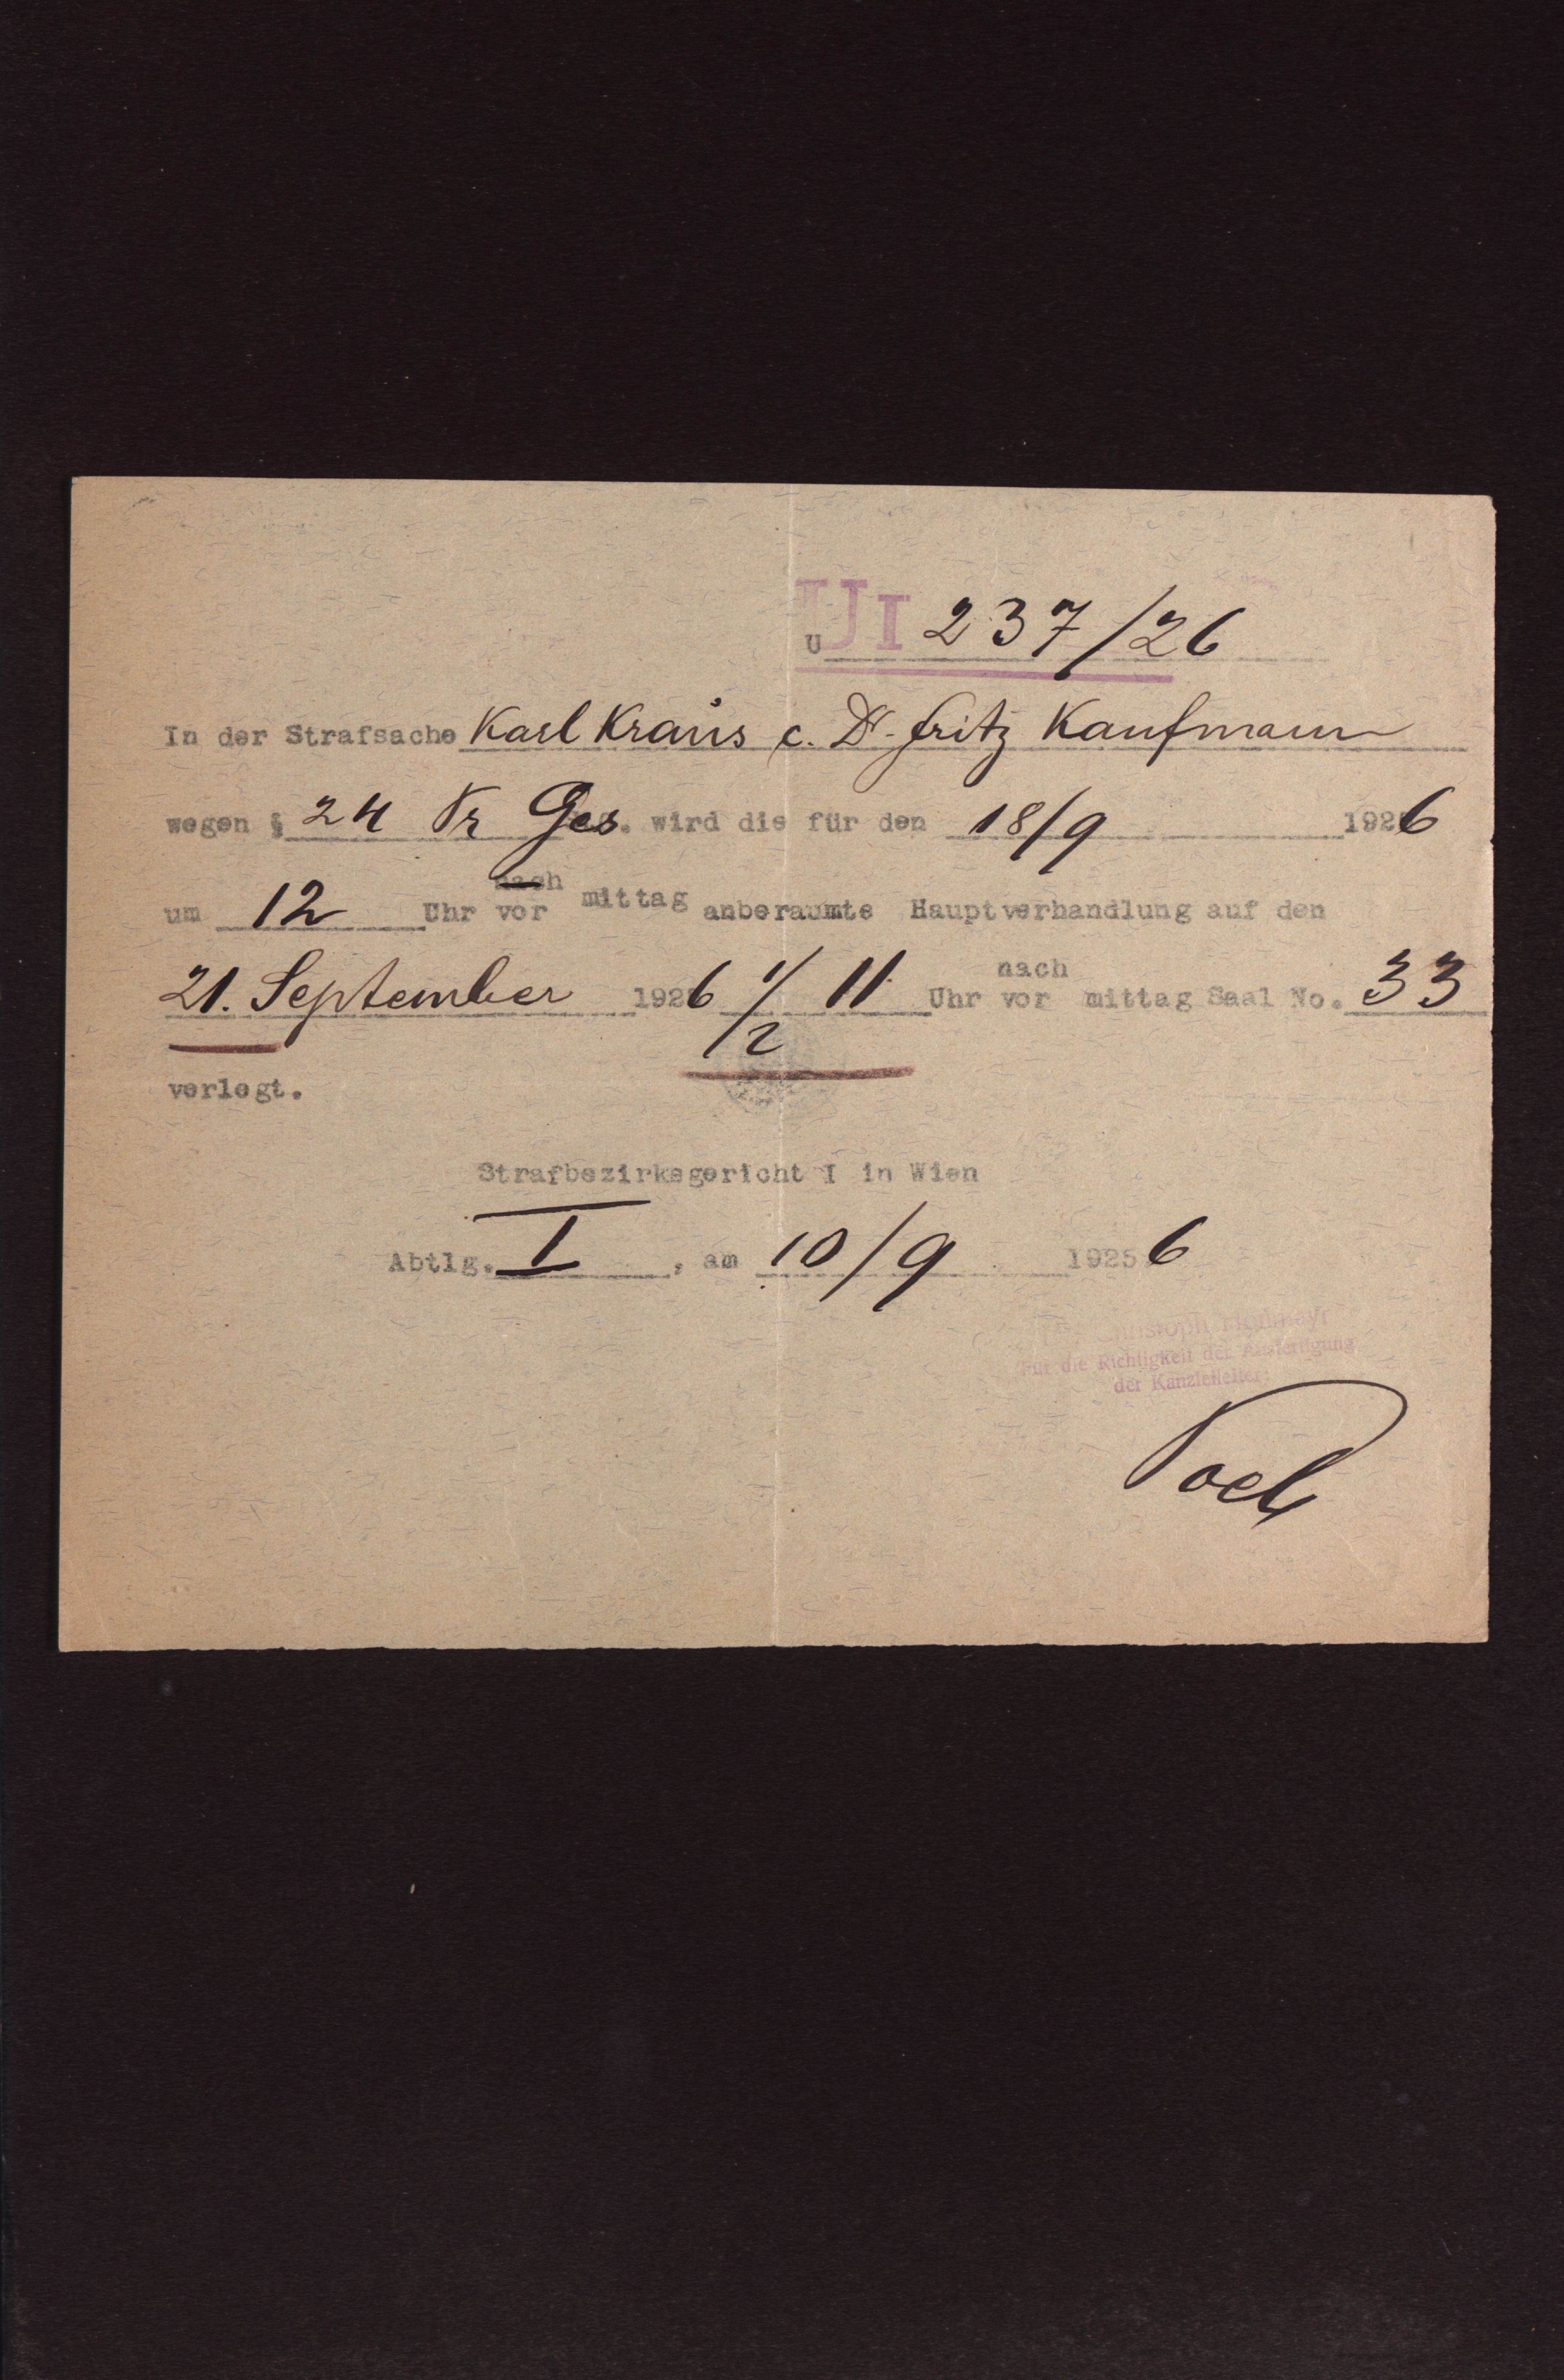 U UI 237/26
In der Strafsache Karl Kraus c. Dr. Fritz Kaufmann
wegen § 24 Pr Ges. wird die für den 18/9 1926
nach
um 12 Uhr vor mittag anberaumte Hauptverhandlung auf den
nach
21. September 1926 1/2 11 Uhr vor mittag Saal No. 33
verlegt.
Strafbezirksgericht I in Wien
Abtlg. I, am 10/9 1925 6
Christoph
Für die Richtigkeit der Ausfertigung
der Kanzleileiter: